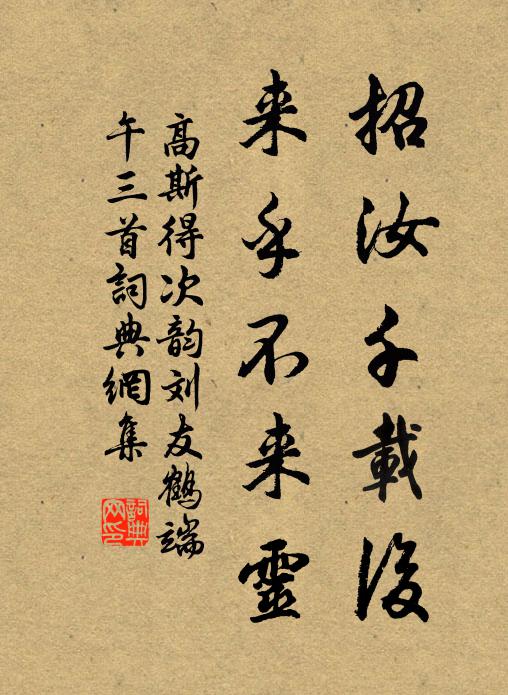 招汝千載後
来乎不来靈
高斯得次韵刘友鶴端
午三首詞典網集
詞典
网印